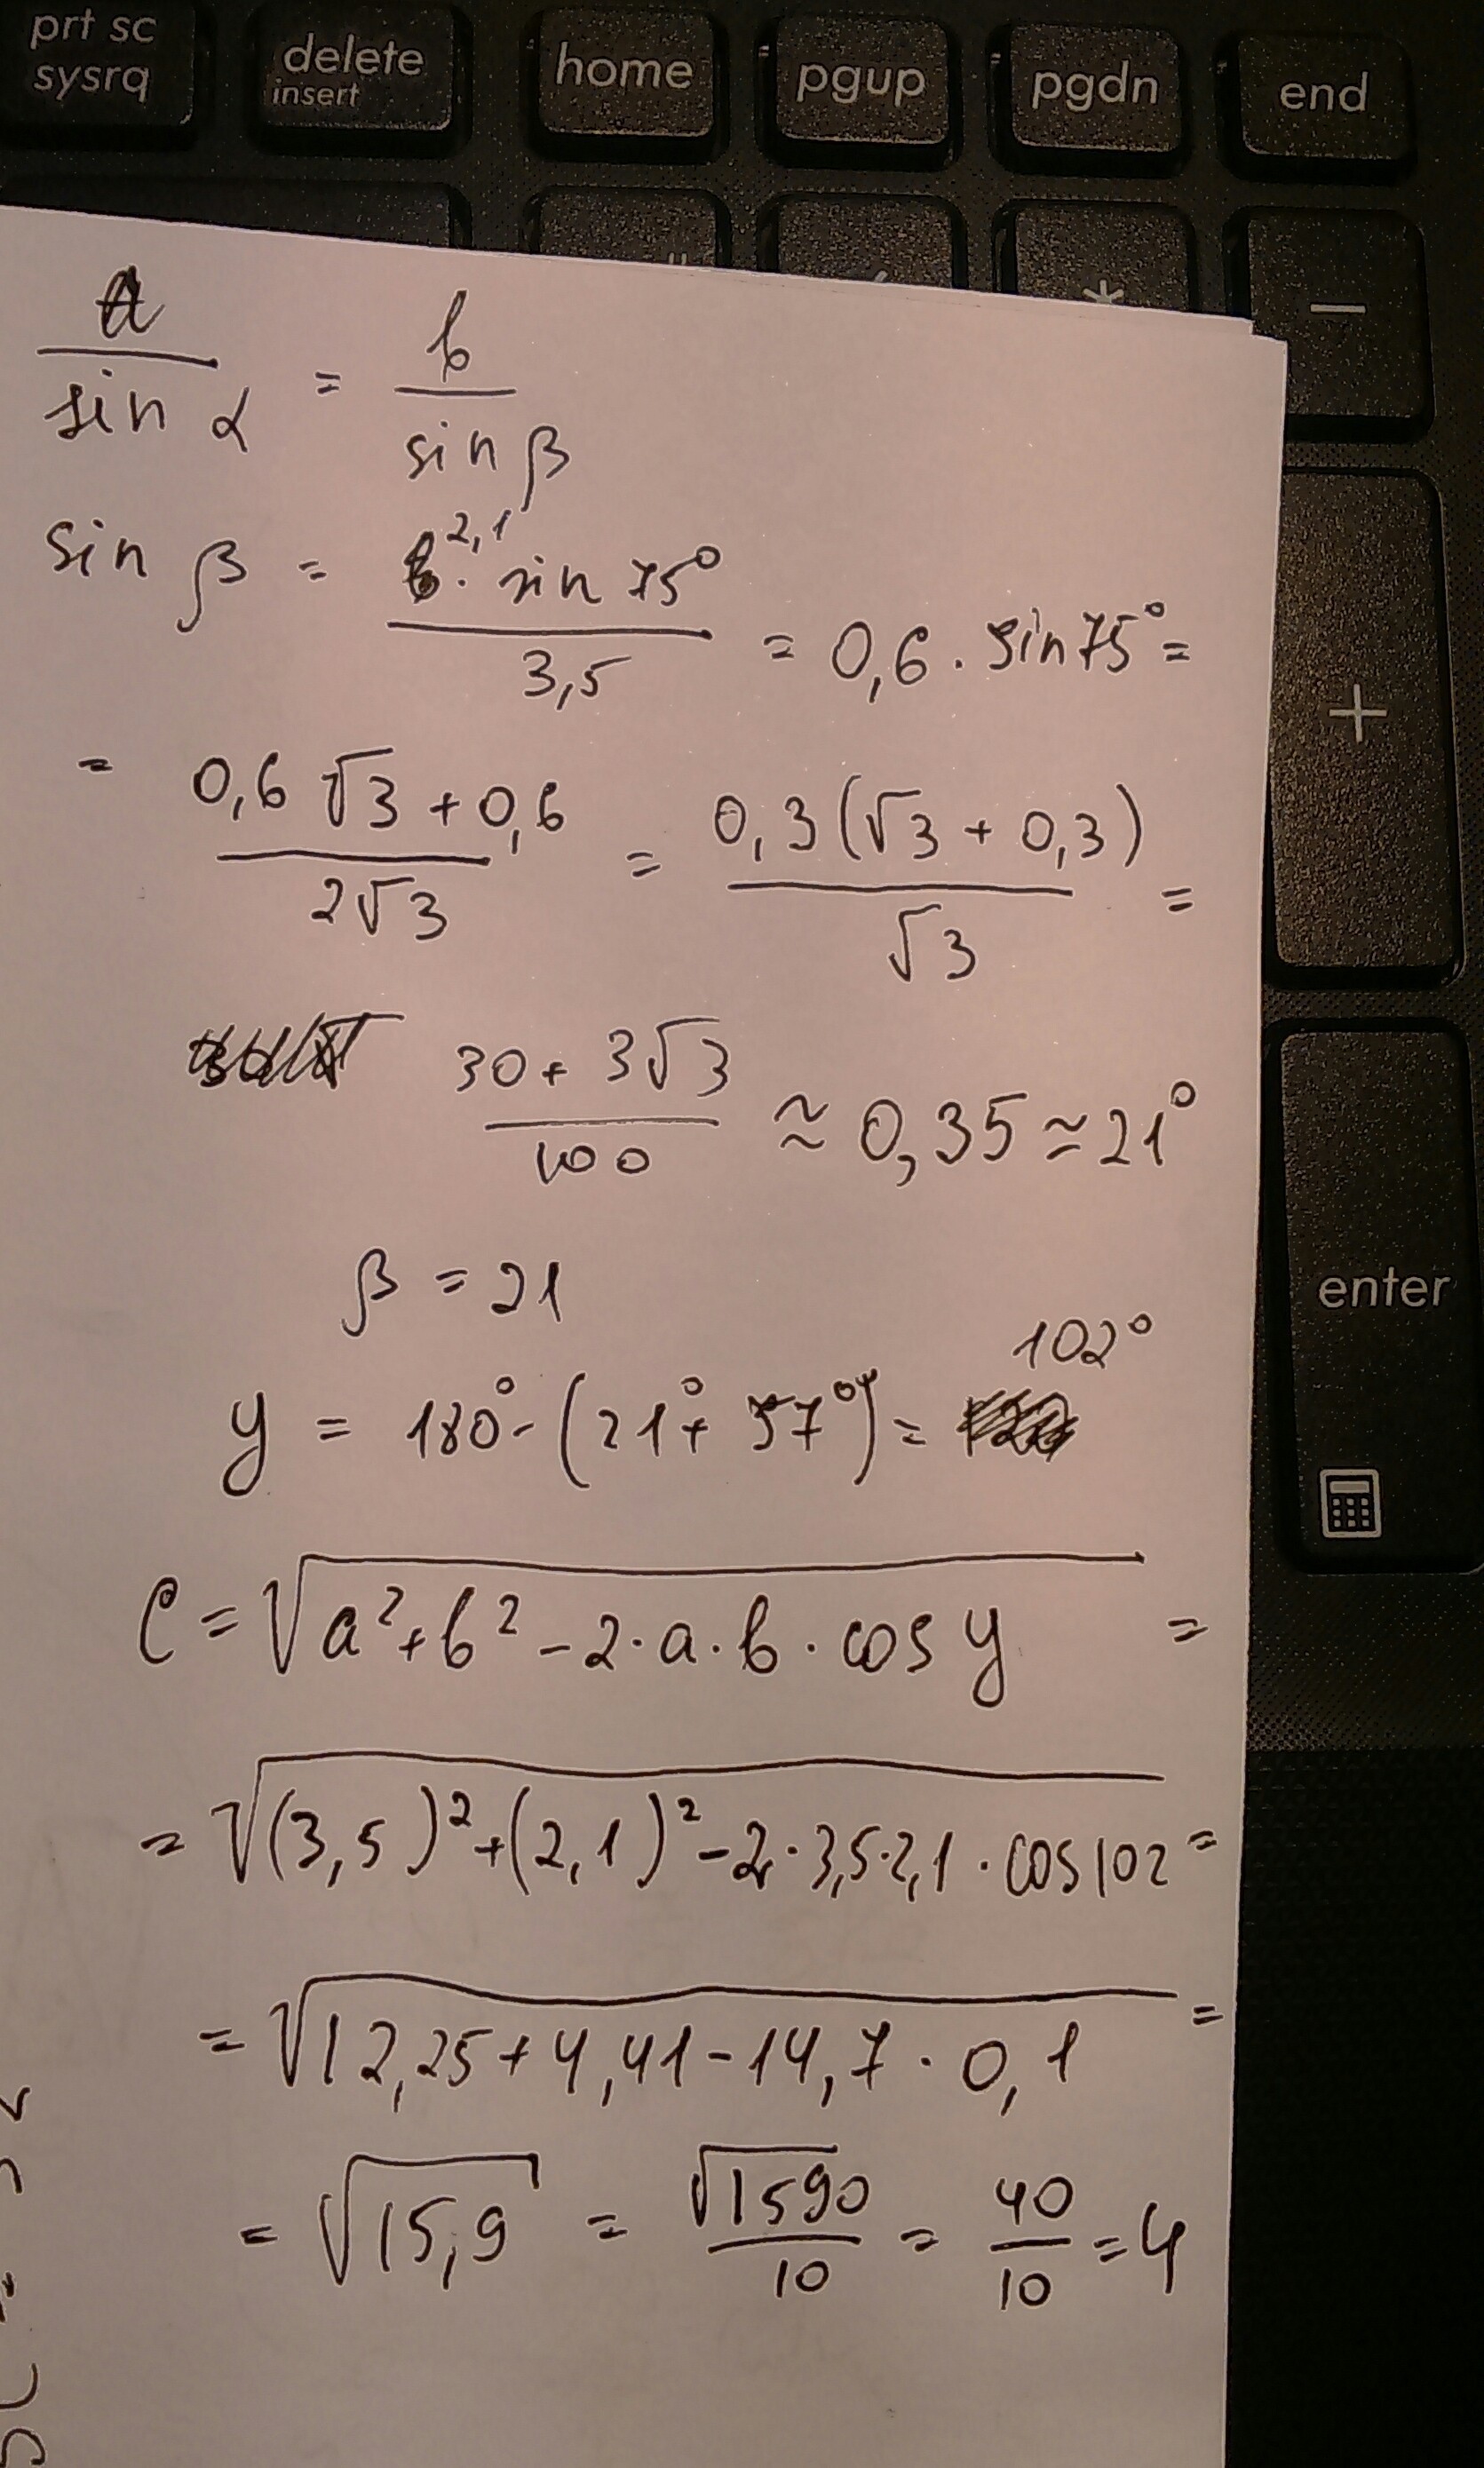 prt sc
sysrq
delete
insert
home
pgup
pgdn
end
*
−
+
enter
a / sin α = b / sin β
sin β = 2,1 · sin 75° / 3,5 = 0,6 · sin 75° =
= 0,6 √3 + 0,6 / 2√3 = 0,3 (√3 + 0,3) / √3 =
30 + 3√3 / 100 ≈ 0,35 ≃ 21°
β = 21
y = 180° - (21° + 57°) = 102°
c = √a² + b² - 2 · a · b · cos y =
= √(3,5)² + (2,1)² - 2 · 3,5 · 2,1 · cos 102 =
= √12,25 + 4,41 - 14,7 · 0,1 =
= √15,9 = √1590 / 10 = 40 / 10 = 4